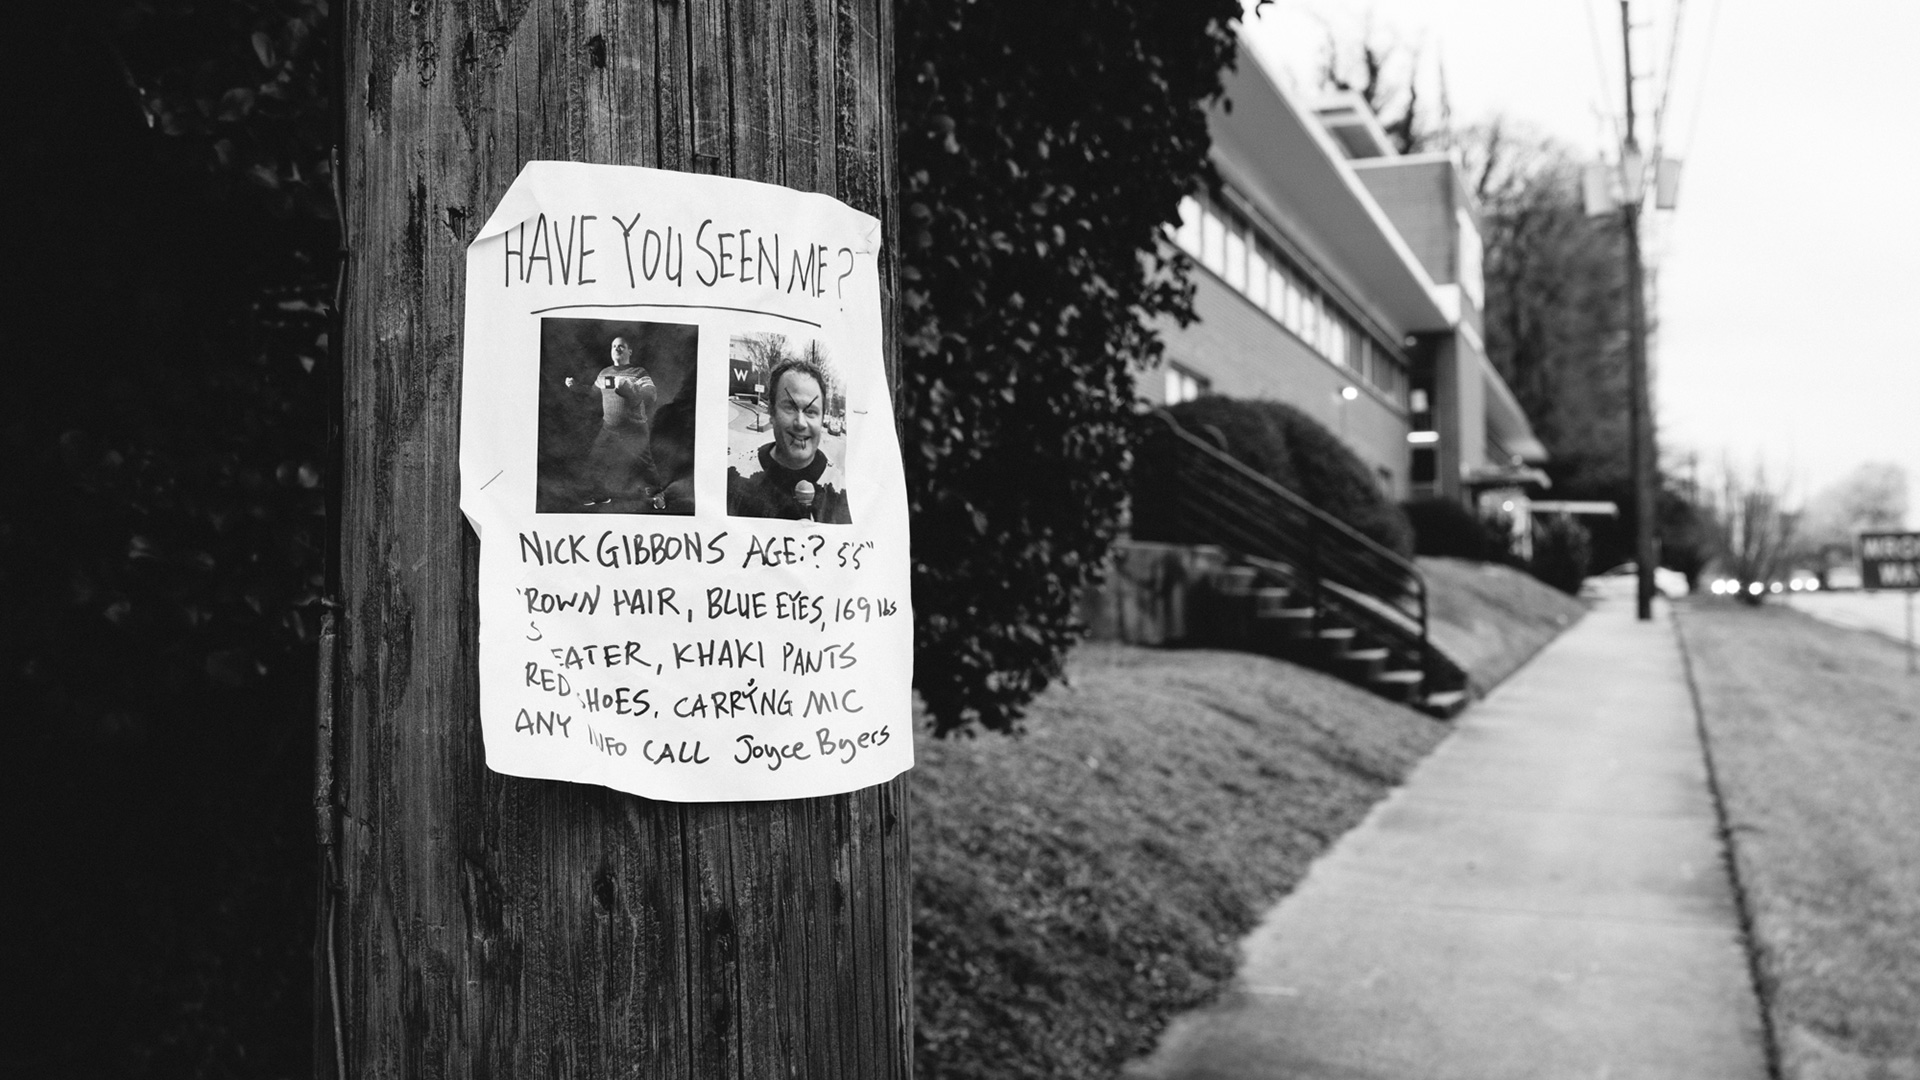 HAVE YOU SEEN ME?
W
NICK GIBBONS AGE:? 5'5"
ROWN HAIR, BLUE EYES, 169 lbs
S EATER, KHAKI PANTS
RED SHOES, CARRYING MIC
ANY INFO CALL Joyce Byers